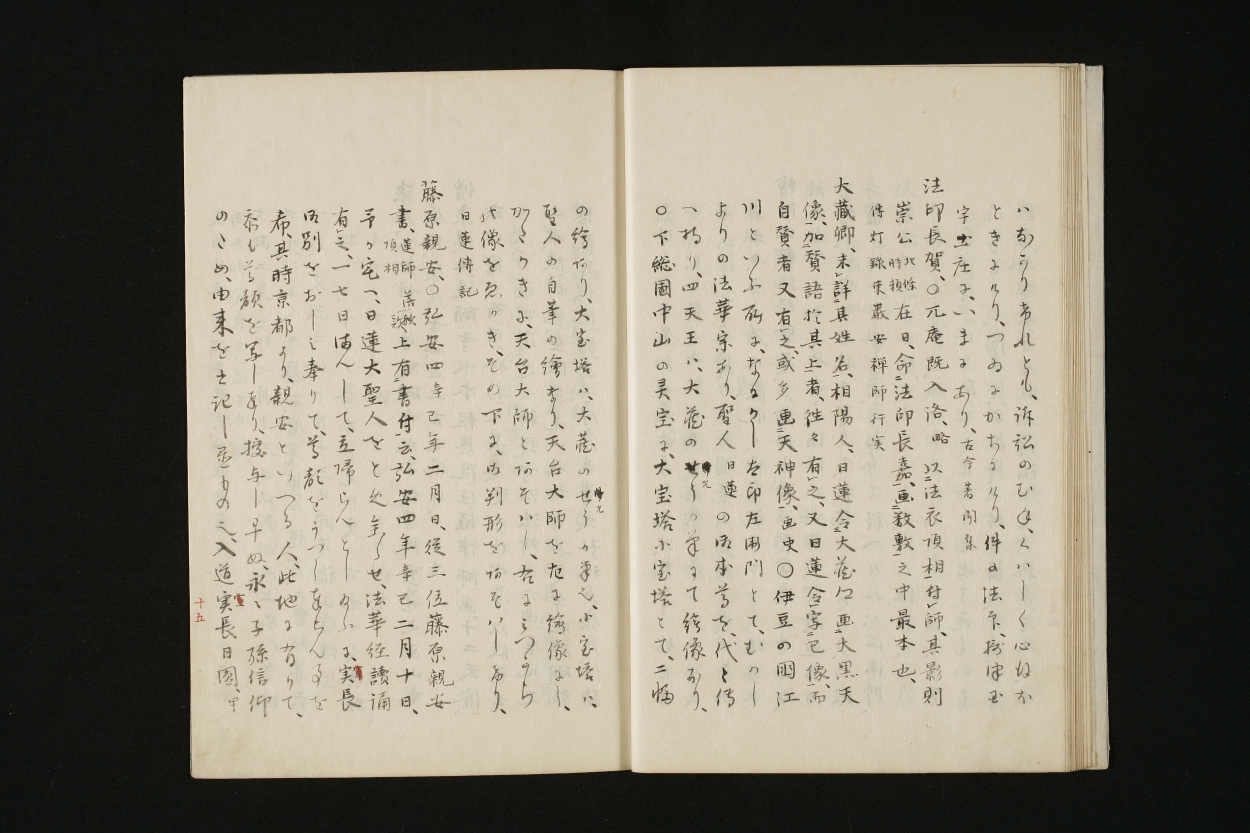 ハなかりけれとも、訴訟のむねくハしく心はか
ときにけり、つゐにかちにけり、件の法印
字土庄に、いまにあり、古今著聞集
法印長賀、〇兀庵既入洛、略 以法衣頂相付師、其影則
崇公北條時頼在日、命法印長嘉、画数敷之中最本也
傳灯録東巌安禅師行実
大蔵卿、未詳其姓名、相陽人、日蓮令大蔵卿画大黒天
像、加賛語於其上者、往々有之、又日蓮令写己像、而
自賛者又有之、或多画天神像、画史〇伊豆の国江
川といふ所に、なにかし左衛門とて、むかし
よりの法華宗あり、聖人日蓮の御本尊を代々傳
へ持り、四天王ハ、大蔵のせうか筆にて絵像なり、
〇下総国中山の灵宝に、大宝塔小宝塔とて、二幅
の絵あり、大宝塔ハ、大蔵のせうか筆也、小宝塔ハ、
聖人の自筆の繪なり、天台大師を右に繪像なし、
かたわきに、天台大師とあそハし、右に
此像をゑかき、その下に、御判形をあそハしたり、
日蓮傳記
藤原親安、〇弘安四辛巳年二月日、従三位藤原親安
書、蓮師頂相 上有書付云、弘安四年辛巳二月十日、
予か宅へ、日蓮大聖人をと
有之、一七日まんして、立帰らんとし給ふに、実長
御別をおしミ奉りて、尊顔をうつし奉らん事を
希、其時京都より、親安といへる人、此地に有りて、
忝も尊顔を写しまり、授与し早ぬ、永々子孫信仰
のため、由来を書記し置もの也、入道実長日圓、甲
十五